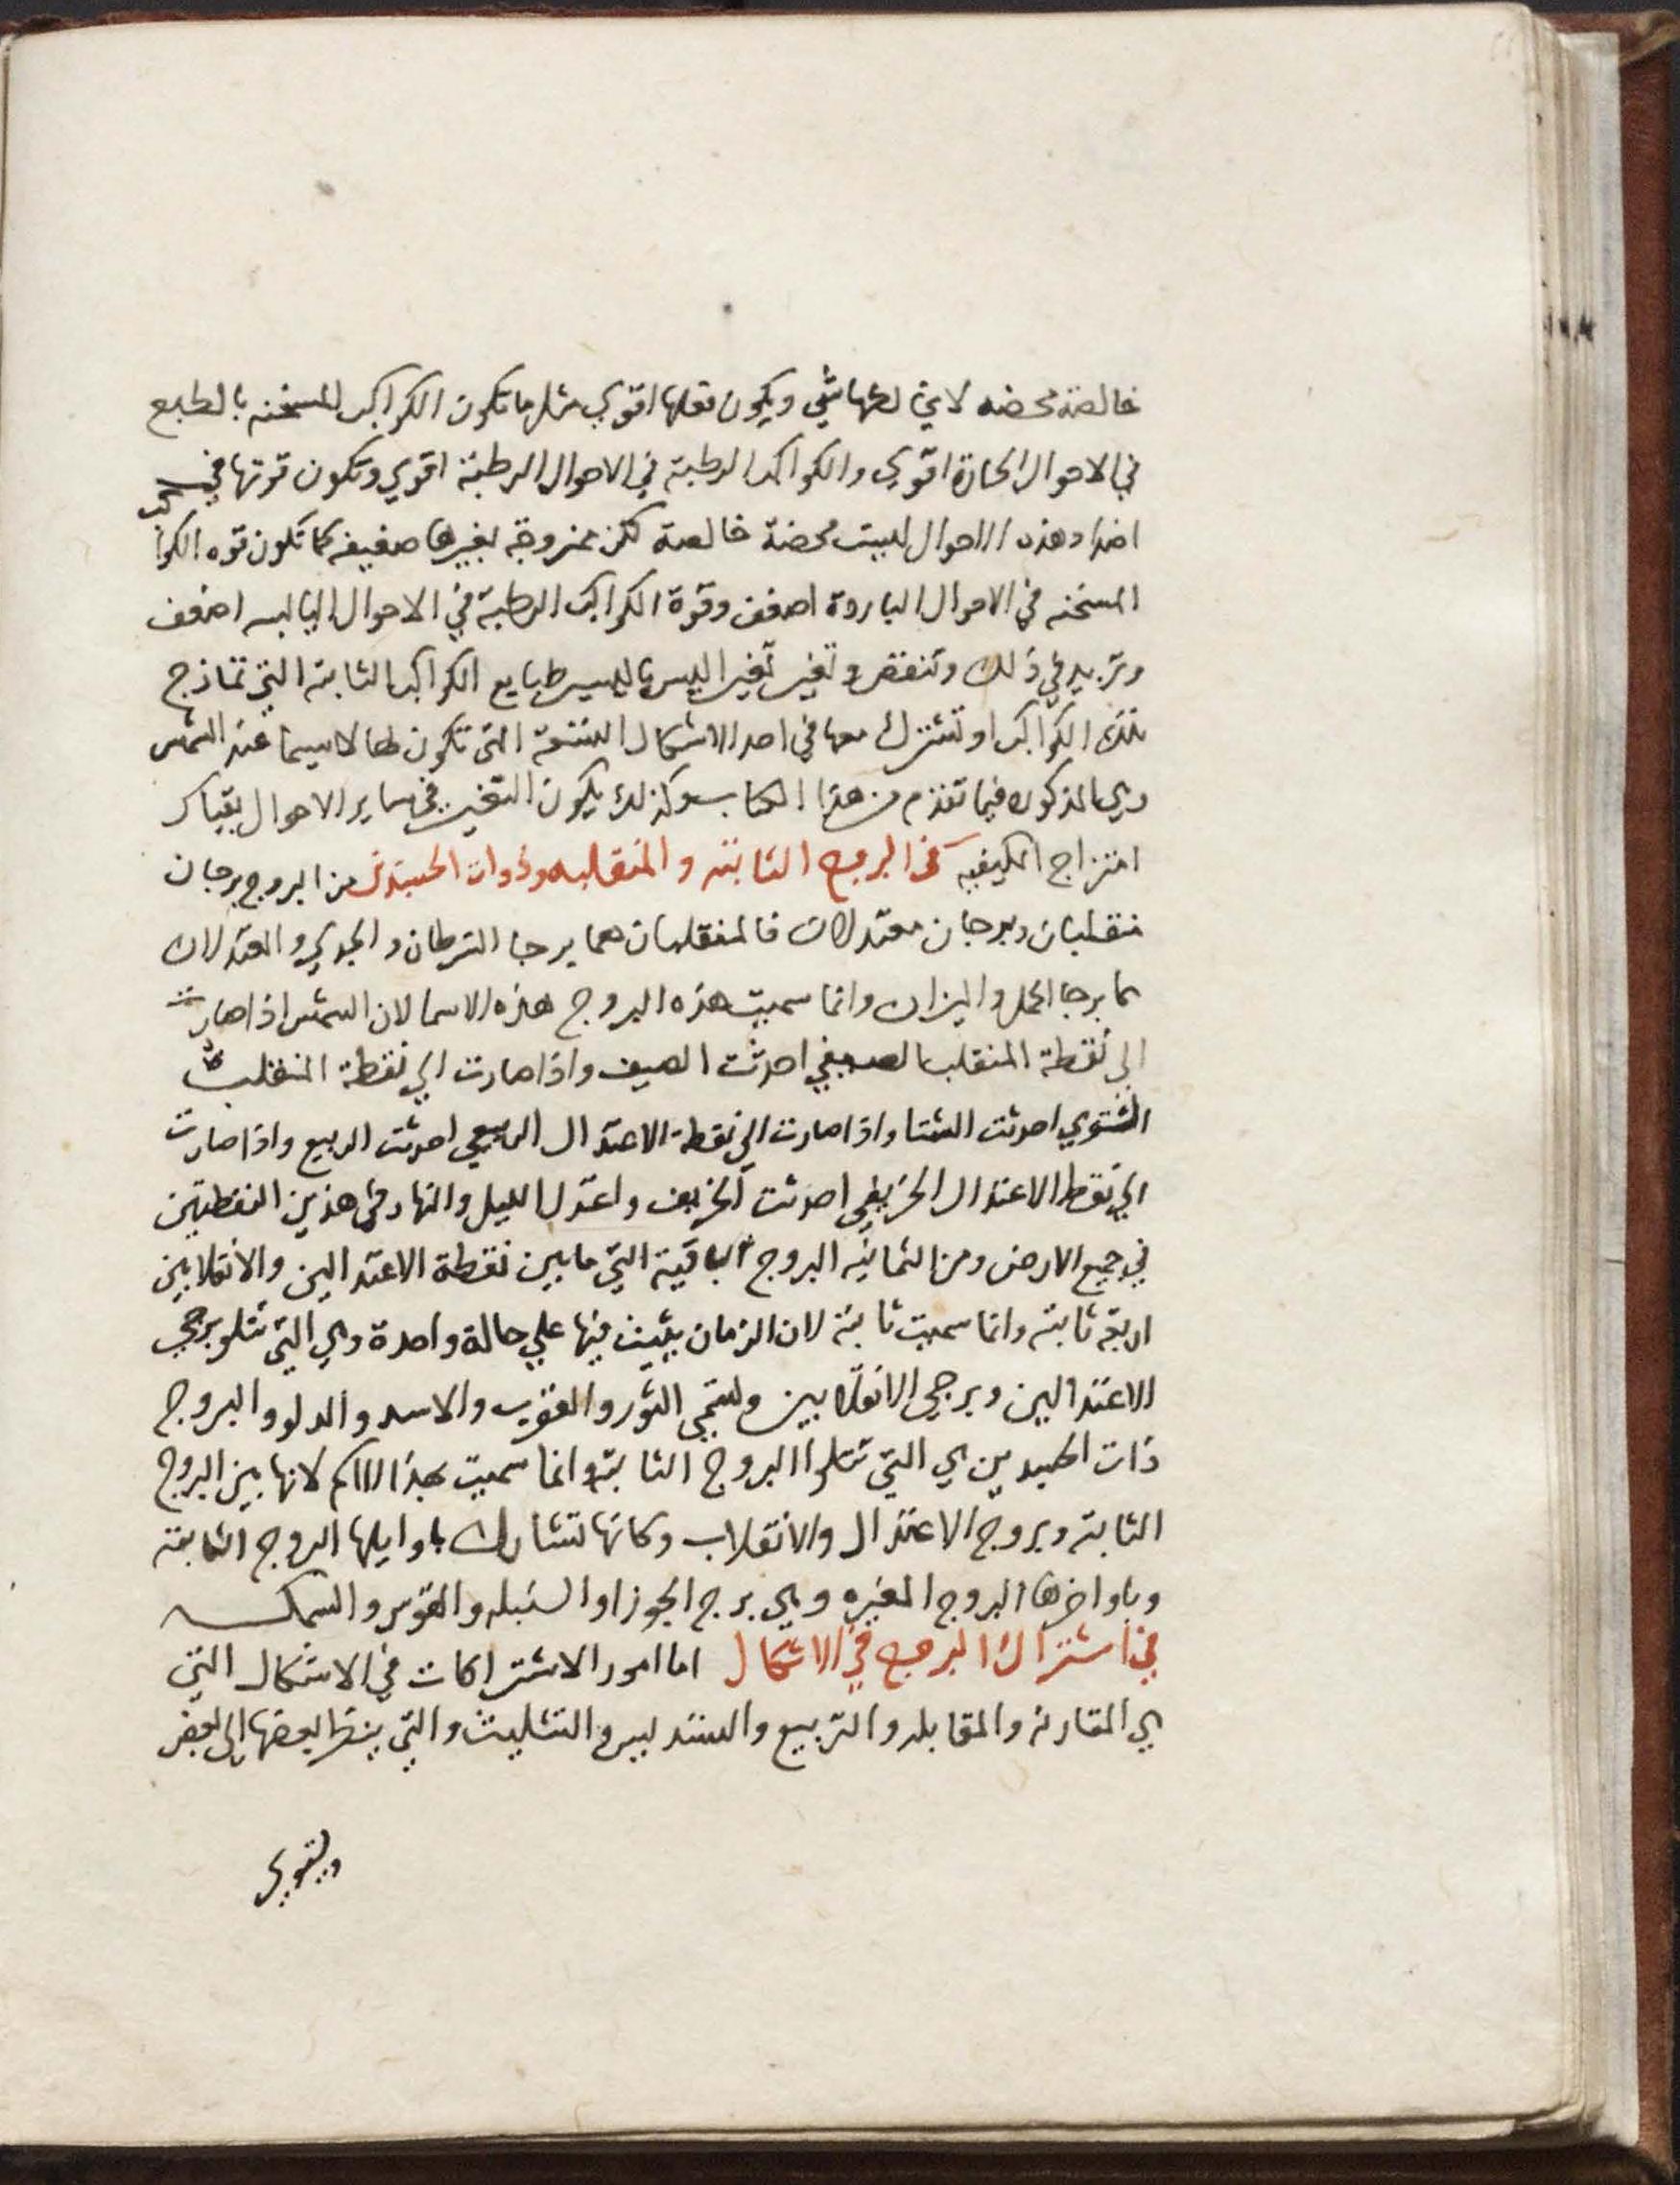 خالصة محضه لا يخالطها شي ويكون فعلها اقوي مثلما تكون الكواكب المسخنه بالطبع
في الاحوال الحارة اقوي والكواكب الرطبة في الاحوال الرطبة اقوي وتكون قوتها في
اضداد هذه الاحوال ليست محضة خالصة لكن ممزوجة بغيرها ضعيفه كما تكون قوه الكواكب
المسخنه في الاحوال الباردة اضعف وقوة الكواكب الرطبة في الاحوال اليابسه اضعف
وتزيد في ذلك وتنقص وتغير تغير اليس باليسير طبايع الكواكب الثابته التي تمازج
تلك الكواكب او تشترك معها في احد الاشكال التسعة التي تكون لها لاسيما عند الشمس
وهي المذكوره فيما تقدم من هذا الكتاب وكذلك يكون التغير في ساير الاحوال بقياس
امتزاج الكيفيه في البروج الثابته والمنقلبه وذوات الجسدين من البروج برجان
منقلبان وبرجان معتدلان فالمنقلبان هما برجا السرطان والجدي والمعتدلان
هما برجا الحمل والميزان وانما سميت هذه البروج هذه الاسما لان الشمس اذا صارت
الي نقطة المنقلب الصيفي احدثت الصيف واذا صارت الي نقطة المنقلب
الشتوي احدثت الشتا واذا صارت الي نقطة الاعتدال الربيعي احدثت الربيع واذا صارت
الي نقطه الاعتدال الخريفي احدثت الخريف واعتدل الليل والنهار في هذين النقطتين
في جميع الارض ومن الثمانيه البروج الباقية التي ما بين نقطة الاعتدالين والانقلابين
اربعة ثابته وانما سميت ثابته لان الزمان يثبت فيها علي حالة واحدة وهي التي تتلو برجي
الاعتدالين وبرجي الانقلابين وتسمي الثور والعقرب والاسد والدلو والبروج
ذات الجسدين هي التي تتلوا البروج الثابته وانما سميت بهذا الاسم لانها بين البروج
الثابته وبروج الاعتدال والانقلاب وكانها تتشارك باوايلها البروج الثابته
وباواخرها البروج المغيره وهي برج الجوزا والسنبله والقوس والسمكه
في اشتراك البروج في الاشكال اما امور الاشتراكات في الاشكال التي
هي المقارنه والمقابله والتربيع والتسديس والتثليث والتي ينظر بعضها الي بعض
ويقوي